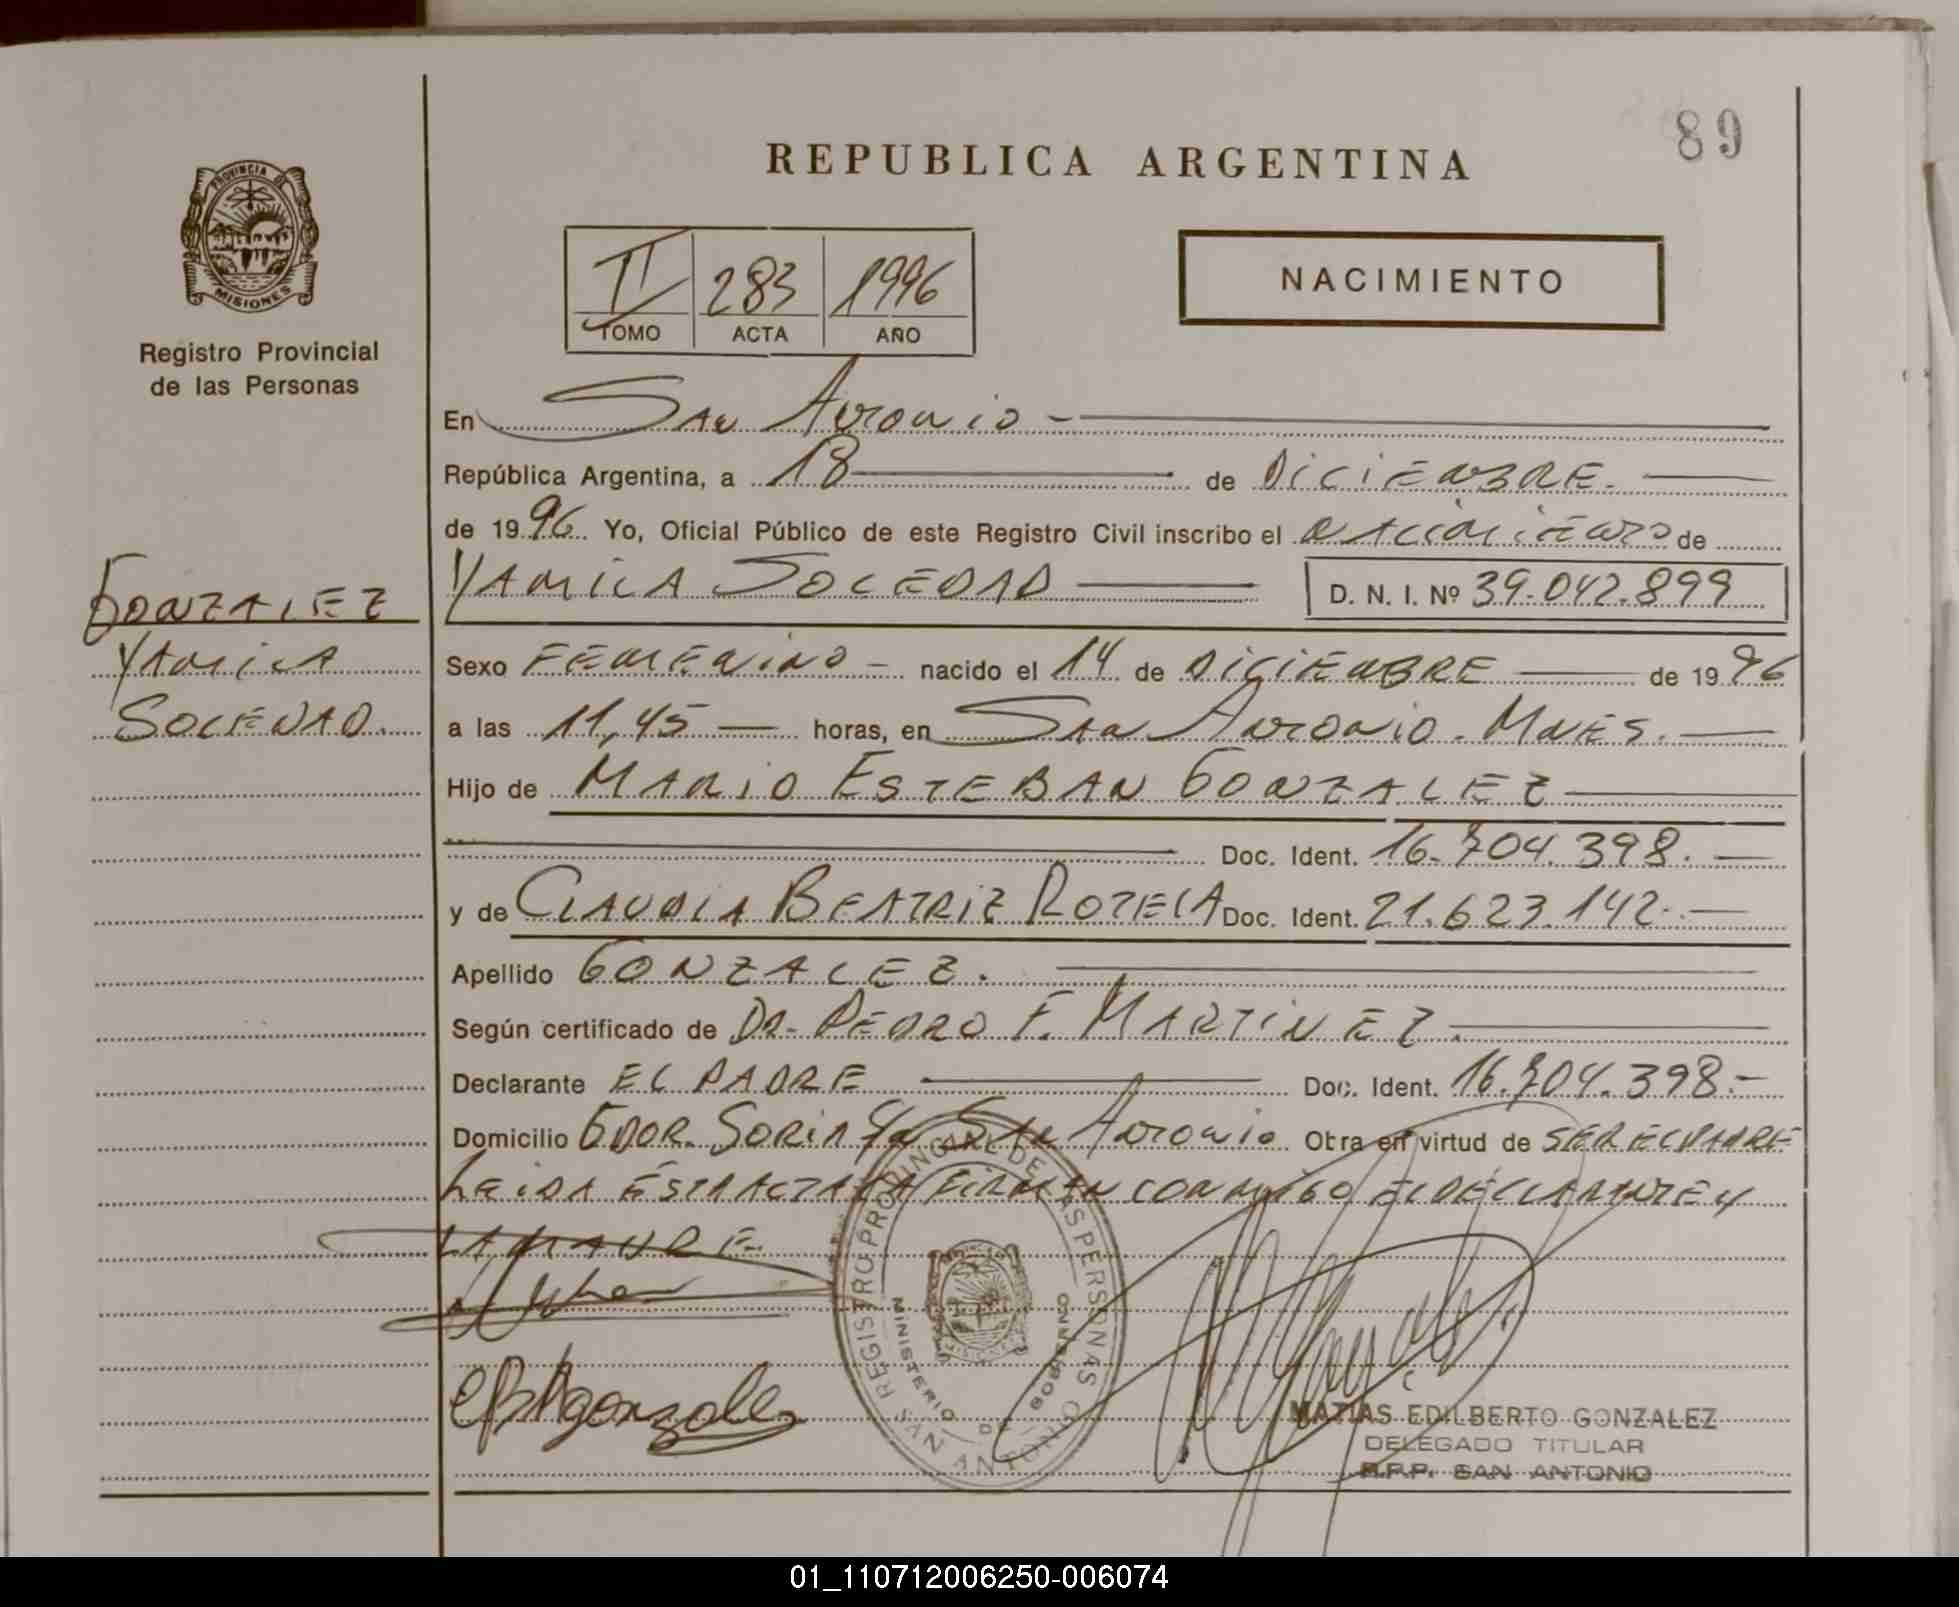 89
REPUBLICA ARGENTINA
PROVINCIA DE
MISIONES
Registro Provincial
de las Personas
II 283 1996
TOMO ACTA AÑO
NACIMIENTO
En San Antonio -
República Argentina, a 18 de DICIEMBRE.
de 1996. Yo, Oficial Público de este Registro Civil inscribo el NACIMIENTO de
YAMILA SOLEDAD D. N. I. Nº 39.042.899
GONZALEZ
YAMILA
SOLEDAD.
Sexo FEMENINO - nacido el 14 de DICIEMBRE de 1996
a las 11,45 horas, en San Antonio. Mnes.
Hijo de MARIO ESTEBAN GONZALEZ
Doc. Ident. 16.704.398.
y de CLAUDIA BEATRIZ ROTELA Doc. Ident. 21.623.142.
Apellido GONZALEZ.
Según certificado de DR. PEDRO F. MARTINEZ.
Declarante EL PADRE Doc. Ident. 16.704.398.-
Domicilio GDOR. SORIA San Antonio Obra en virtud de SER EL PADRE
LEIDA ESTA ACTA LA FIRMAN CONMIGO EL DECLARANTE Y
LA MADRE.
REGISTRO PROVINCIAL DE LAS PERSONAS
MINISTERIO DE GOBIERNO
SAN ANTONIO
MISIONES
MATIAS EDILBERTO GONZALEZ
DELEGADO TITULAR
R.P.P. SAN ANTONIO
01_110712006250-006074